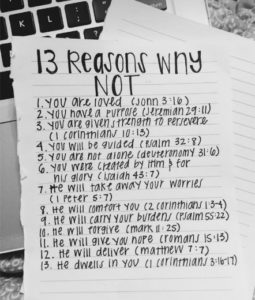 13 Reasons Why
NOT
1. You are loved (John 3:16)
2. You have a purpose (Jeremiah 29:11)
3. You are given strength to persevere
(1 Corinthians 10:13)
4. You will be guided (Psalm 32:8)
5. You are not alone (Deuteronomy 31:6)
6. You were created by Him & for
his glory (Isaiah 43:7)
7. He will take away your worries
(1 Peter 5:7)
8. He will comfort you (2 Corinthians 1:3-4)
9. He will carry your burdens (Psalm 55:22)
10. He will forgive (Mark 11:25)
11. He will give you hope (Romans 15:13)
12. He will deliver (Matthew 7:7)
13. He dwells in you (1 Corinthians 3:16-17)